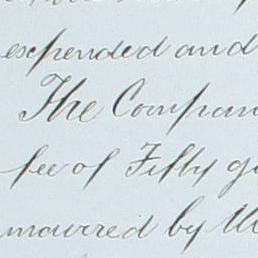 expended and
The Compan
fee of Fifty g
mourred by th